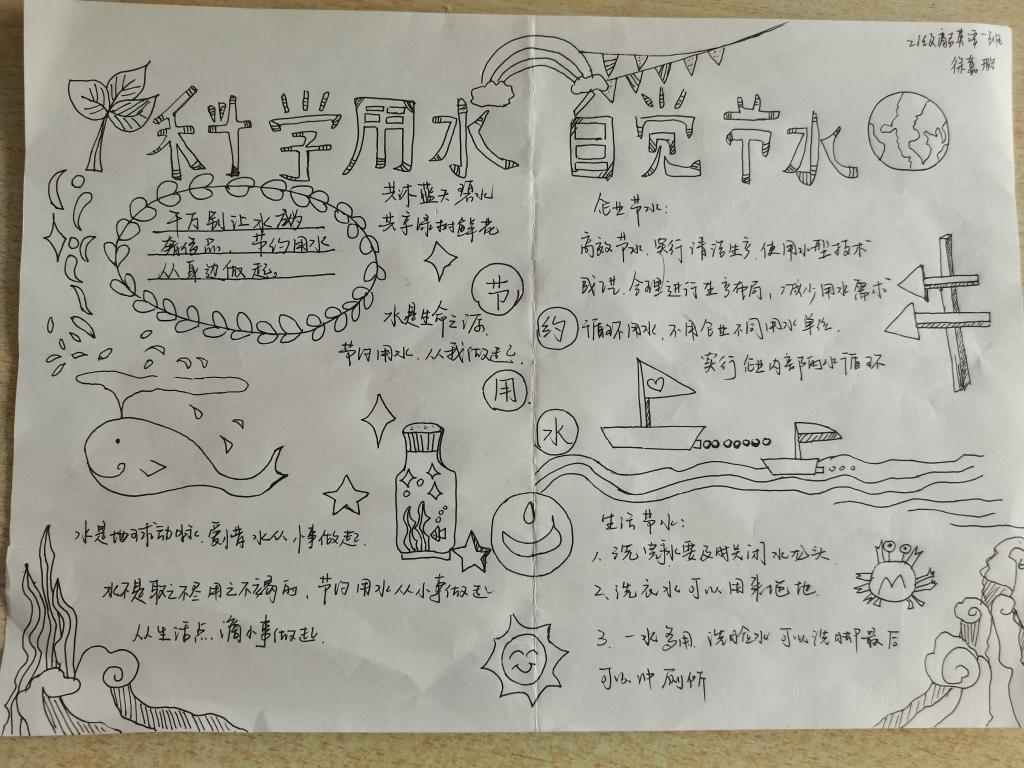 21级商务英语一班
徐嘉
科学用水 自觉节水
千万别让水成为
奢侈品，节约用水
从身边做起。
共沐蓝天碧水
共享绿树鲜花
水是生命之源
节约用水，从我做起
节
约
用
水
水是地球动脉，爱惜水从小事做起
水不是取之不尽用之不竭的，节约用水从小事做起
从生活点滴小事做起
企业节水：
高效节水，实行清洁生产，使用水型技术
改进，合理进行生产布局，减少用水需求
循环用水，不用企业不同用水单位，
实行企业内部的水循环
生活节水：
1、洗完手要及时关闭水龙头
2、洗衣水可以用来拖地
3、一水多用，洗脸水可以洗脚最后
可以冲厕所